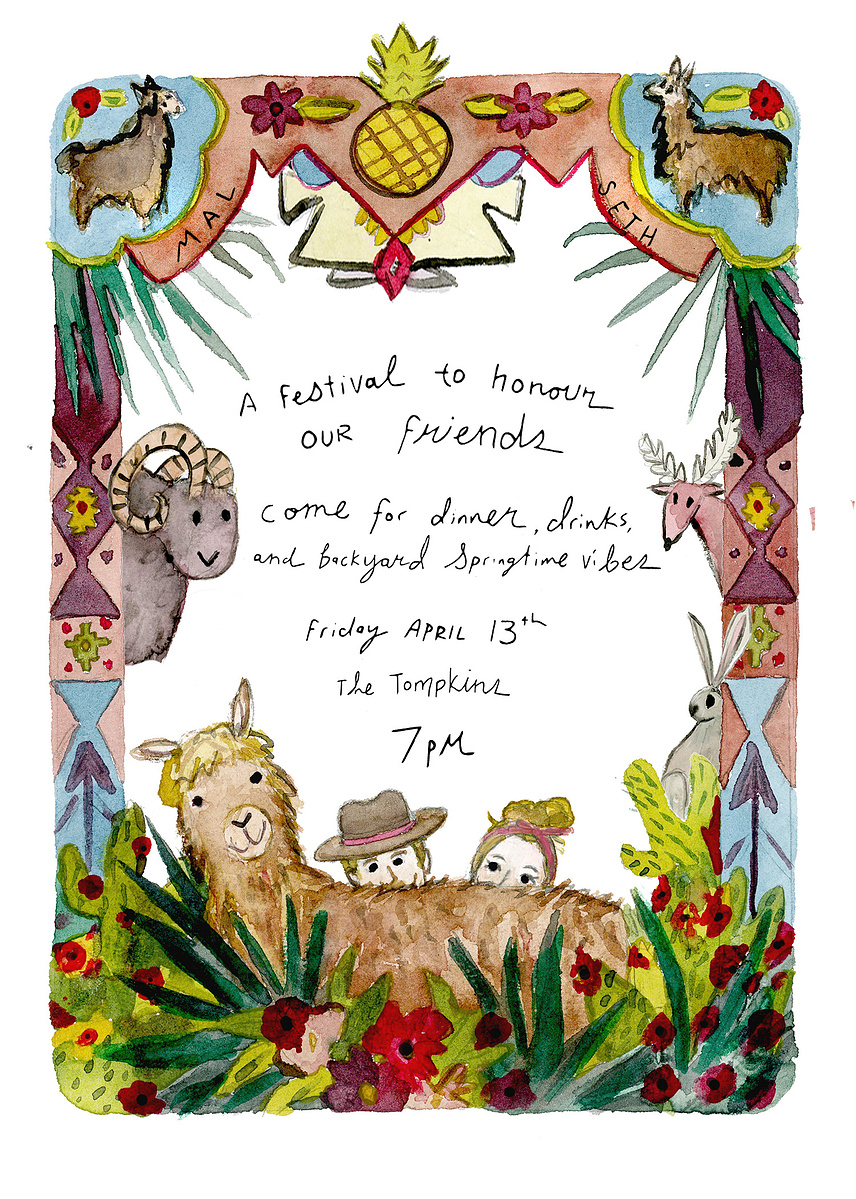 MAL
SETH
A festival to honour
OUR friends
come for dinner, drinks,
and backyard springtime vibes
Friday APRIL 13th
The Tompkins
7pM